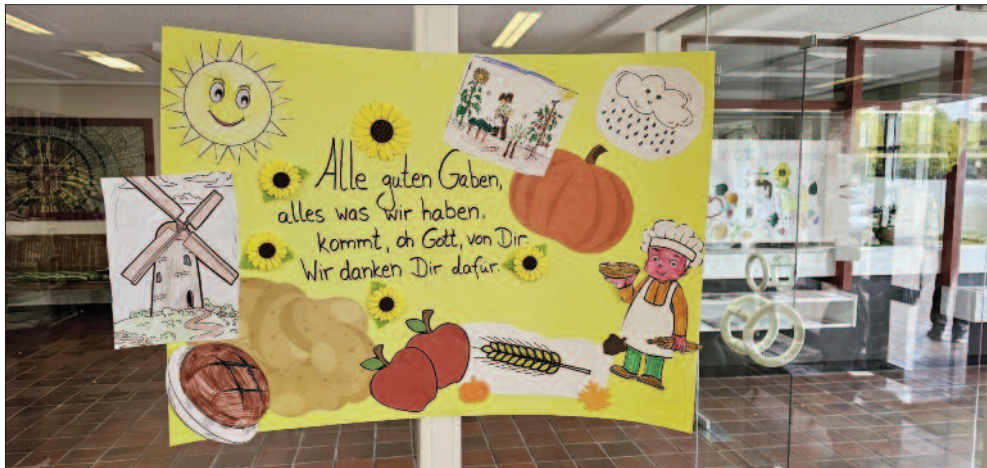 Alle guten Gaben,
alles was wir haben.
kommt, oh Gott, von Dir.
Wir danken Dir dafür.